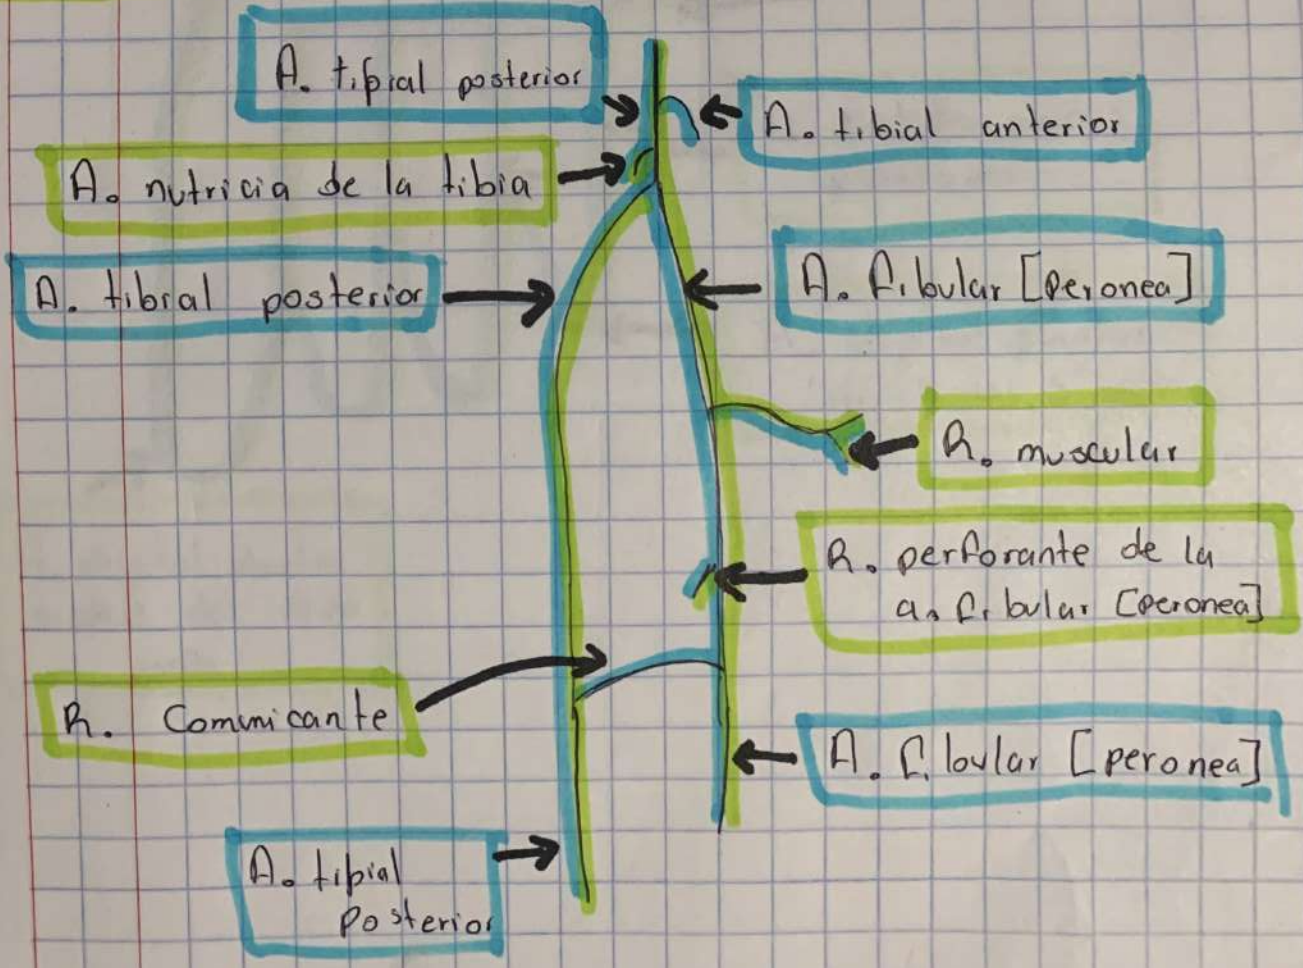 A. tibial posterior
A. tibial anterior
A. nutricia de la tibia
A. tibial posterior
A. fibular [peronea]
R. muscular
R. perforante de la
a. fibular [peronea]
R. Comunicante
A. fibular [peronea]
A. tibial
Posterior